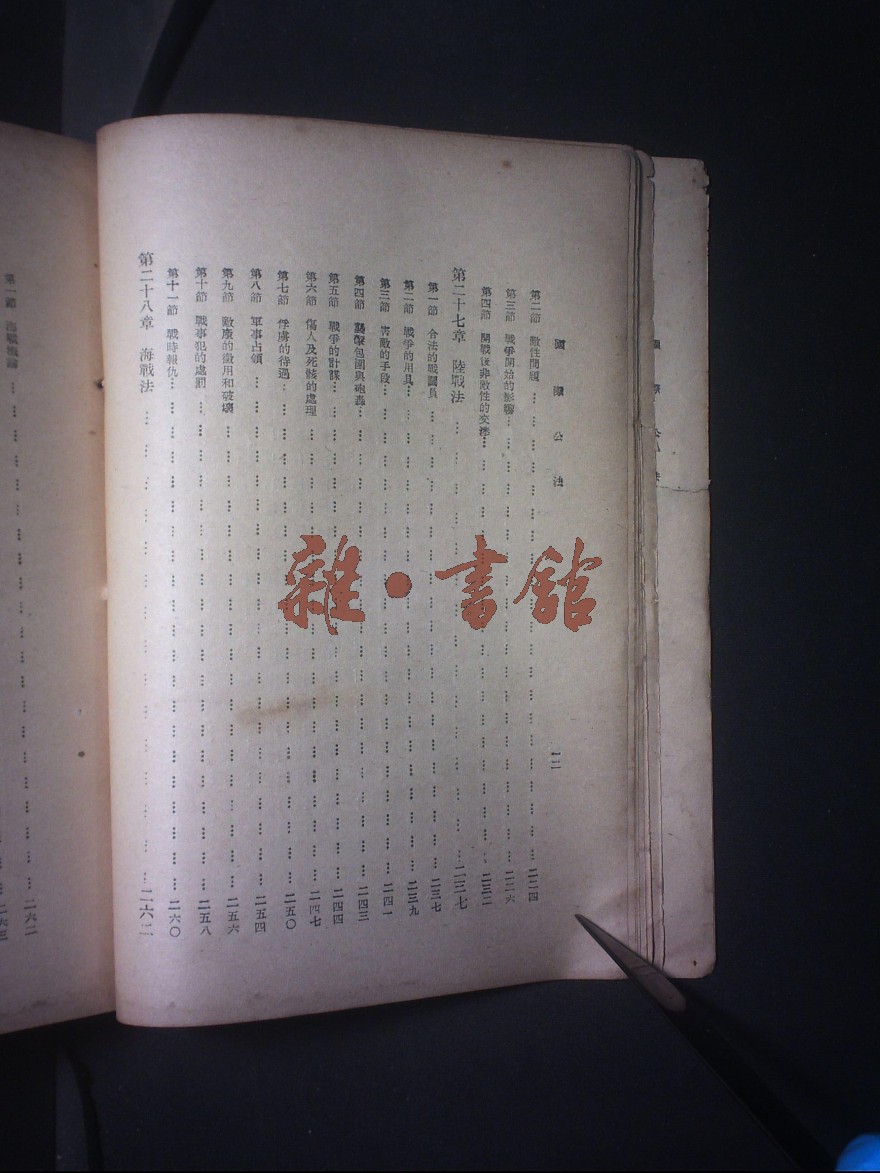 國際公法
一二
第二節 敵性問題……二二四
第三節 戰爭開始的影響……二二六
第四節 開戰後非敵性的交涉……二三二
第二十七章 陸戰法……二三七
第一節 合法的戰鬪員……二三七
第二節 戰爭的用具……二三九
第三節 害敵的手段……二四一
第四節 襲擊包圍與砲轟……二四三
第五節 戰爭的計謀……二四四
第六節 傷人及死骸的處理……二四七
第七節 俘虜的待遇……二五〇
第八節 軍事占領……二五四
第九節 敵產的徵用和破壞……二五六
第十節 戰事犯的處罰……二五八
第十一節 戰時報仇……二六〇
第二十八章 海戰法……二六二
第一節 海戰……二六二
雜·書館